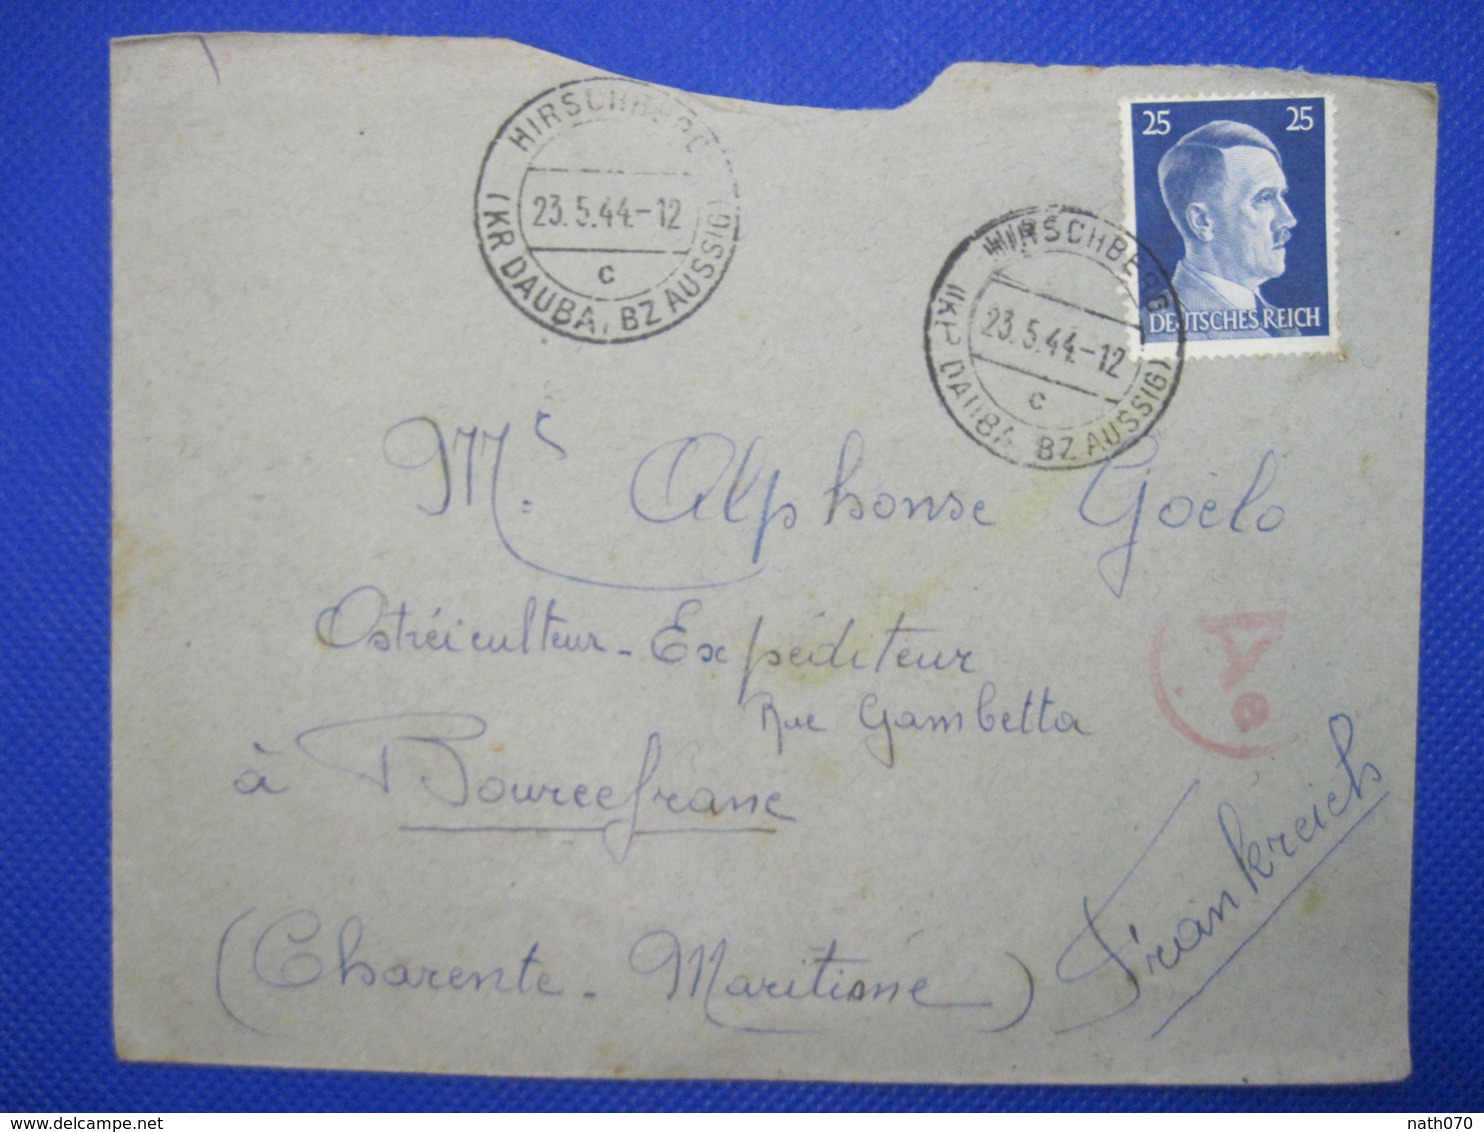 HIRSCHBERG
23.5.44.-12
c
(KR DAUBA, BZ AUSSIG)
25 25
DEUTSCHES REICH
HIRSCHBERG
23.5.44.-12
c
(KR DAUBA, BZ AUSSIG)
Mr. Alphonse Goëlo
Ostréiculteur - Expéditeur
Rue Gambetta
à Bourcefranc
(Charente - Maritime)
Frankreich
nath070